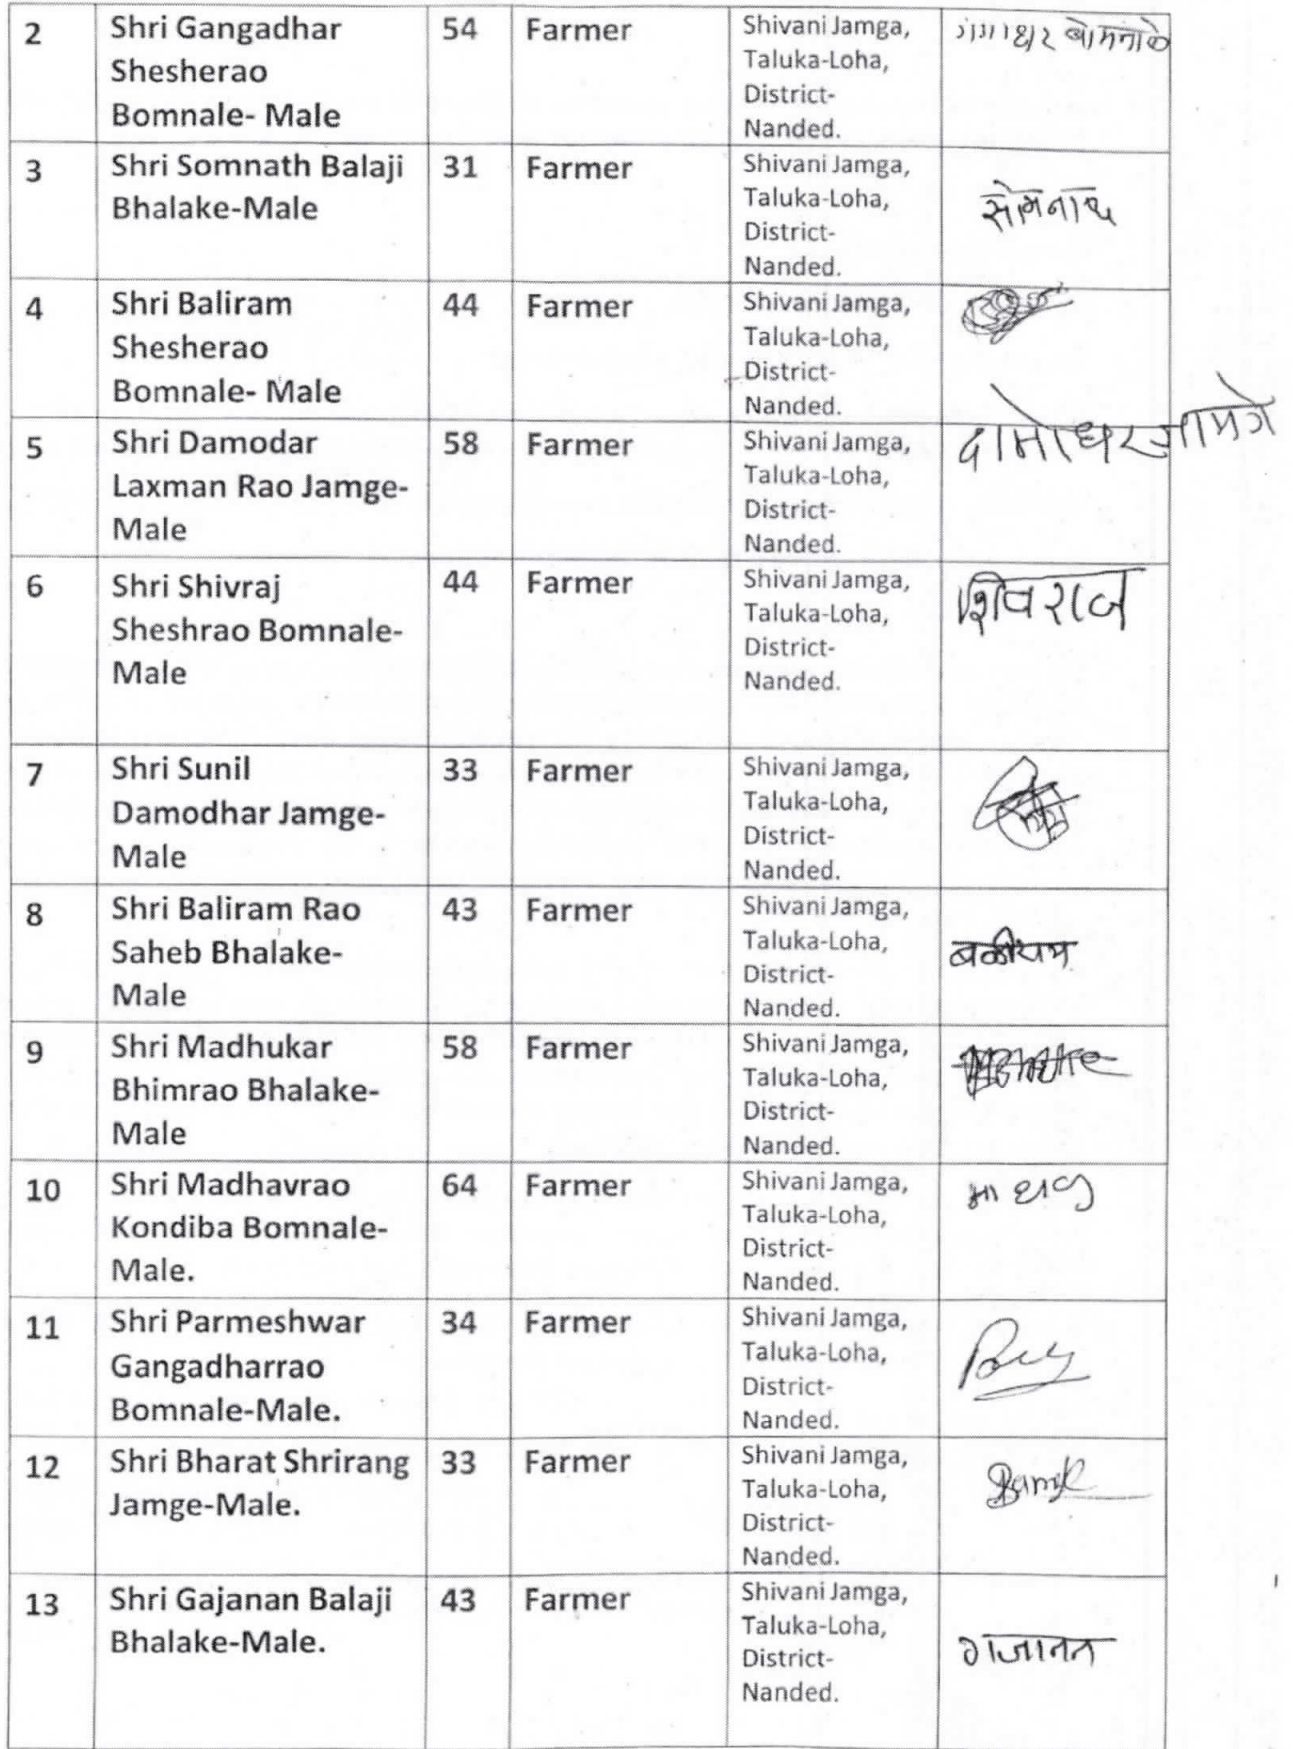 2
Shri Gangadhar
Shesherao
Bomnale- Male
54
Farmer
Shivani Jamga,
Taluka-Loha,
District-
Nanded.
गंगाधर बोमनाळे
3
Shri Somnath Balaji
Bhalake-Male
31
Farmer
Shivani Jamga,
Taluka-Loha,
District-
Nanded.
सोमनाथ
4
Shri Baliram
Shesherao
Bomnale- Male
44
Farmer
Shivani Jamga,
Taluka-Loha,
District-
Nanded.
5
Shri Damodar
Laxman Rao Jamge-
Male
58
Farmer
Shivani Jamga,
Taluka-Loha,
District-
Nanded.
दामोधर जामगे
6
Shri Shivraj
Sheshrao Bomnale-
Male
44
Farmer
Shivani Jamga,
Taluka-Loha,
District-
Nanded.
शिवराज
7
Shri Sunil
Damodhar Jamge-
Male
33
Farmer
Shivani Jamga,
Taluka-Loha,
District-
Nanded.
8
Shri Baliram Rao
Saheb Bhalake-
Male
43
Farmer
Shivani Jamga,
Taluka-Loha,
District-
Nanded.
बळीराम
9
Shri Madhukar
Bhimrao Bhalake-
Male
58
Farmer
Shivani Jamga,
Taluka-Loha,
District-
Nanded.
10
Shri Madhavrao
Kondiba Bomnale-
Male.
64
Farmer
Shivani Jamga,
Taluka-Loha,
District-
Nanded.
माधव
11
Shri Parmeshwar
Gangadharrao
Bomnale-Male.
34
Farmer
Shivani Jamga,
Taluka-Loha,
District-
Nanded.
12
Shri Bharat Shrirang
Jamge-Male.
33
Farmer
Shivani Jamga,
Taluka-Loha,
District-
Nanded.
13
Shri Gajanan Balaji
Bhalake-Male.
43
Farmer
Shivani Jamga,
Taluka-Loha,
District-
Nanded.
गजानन